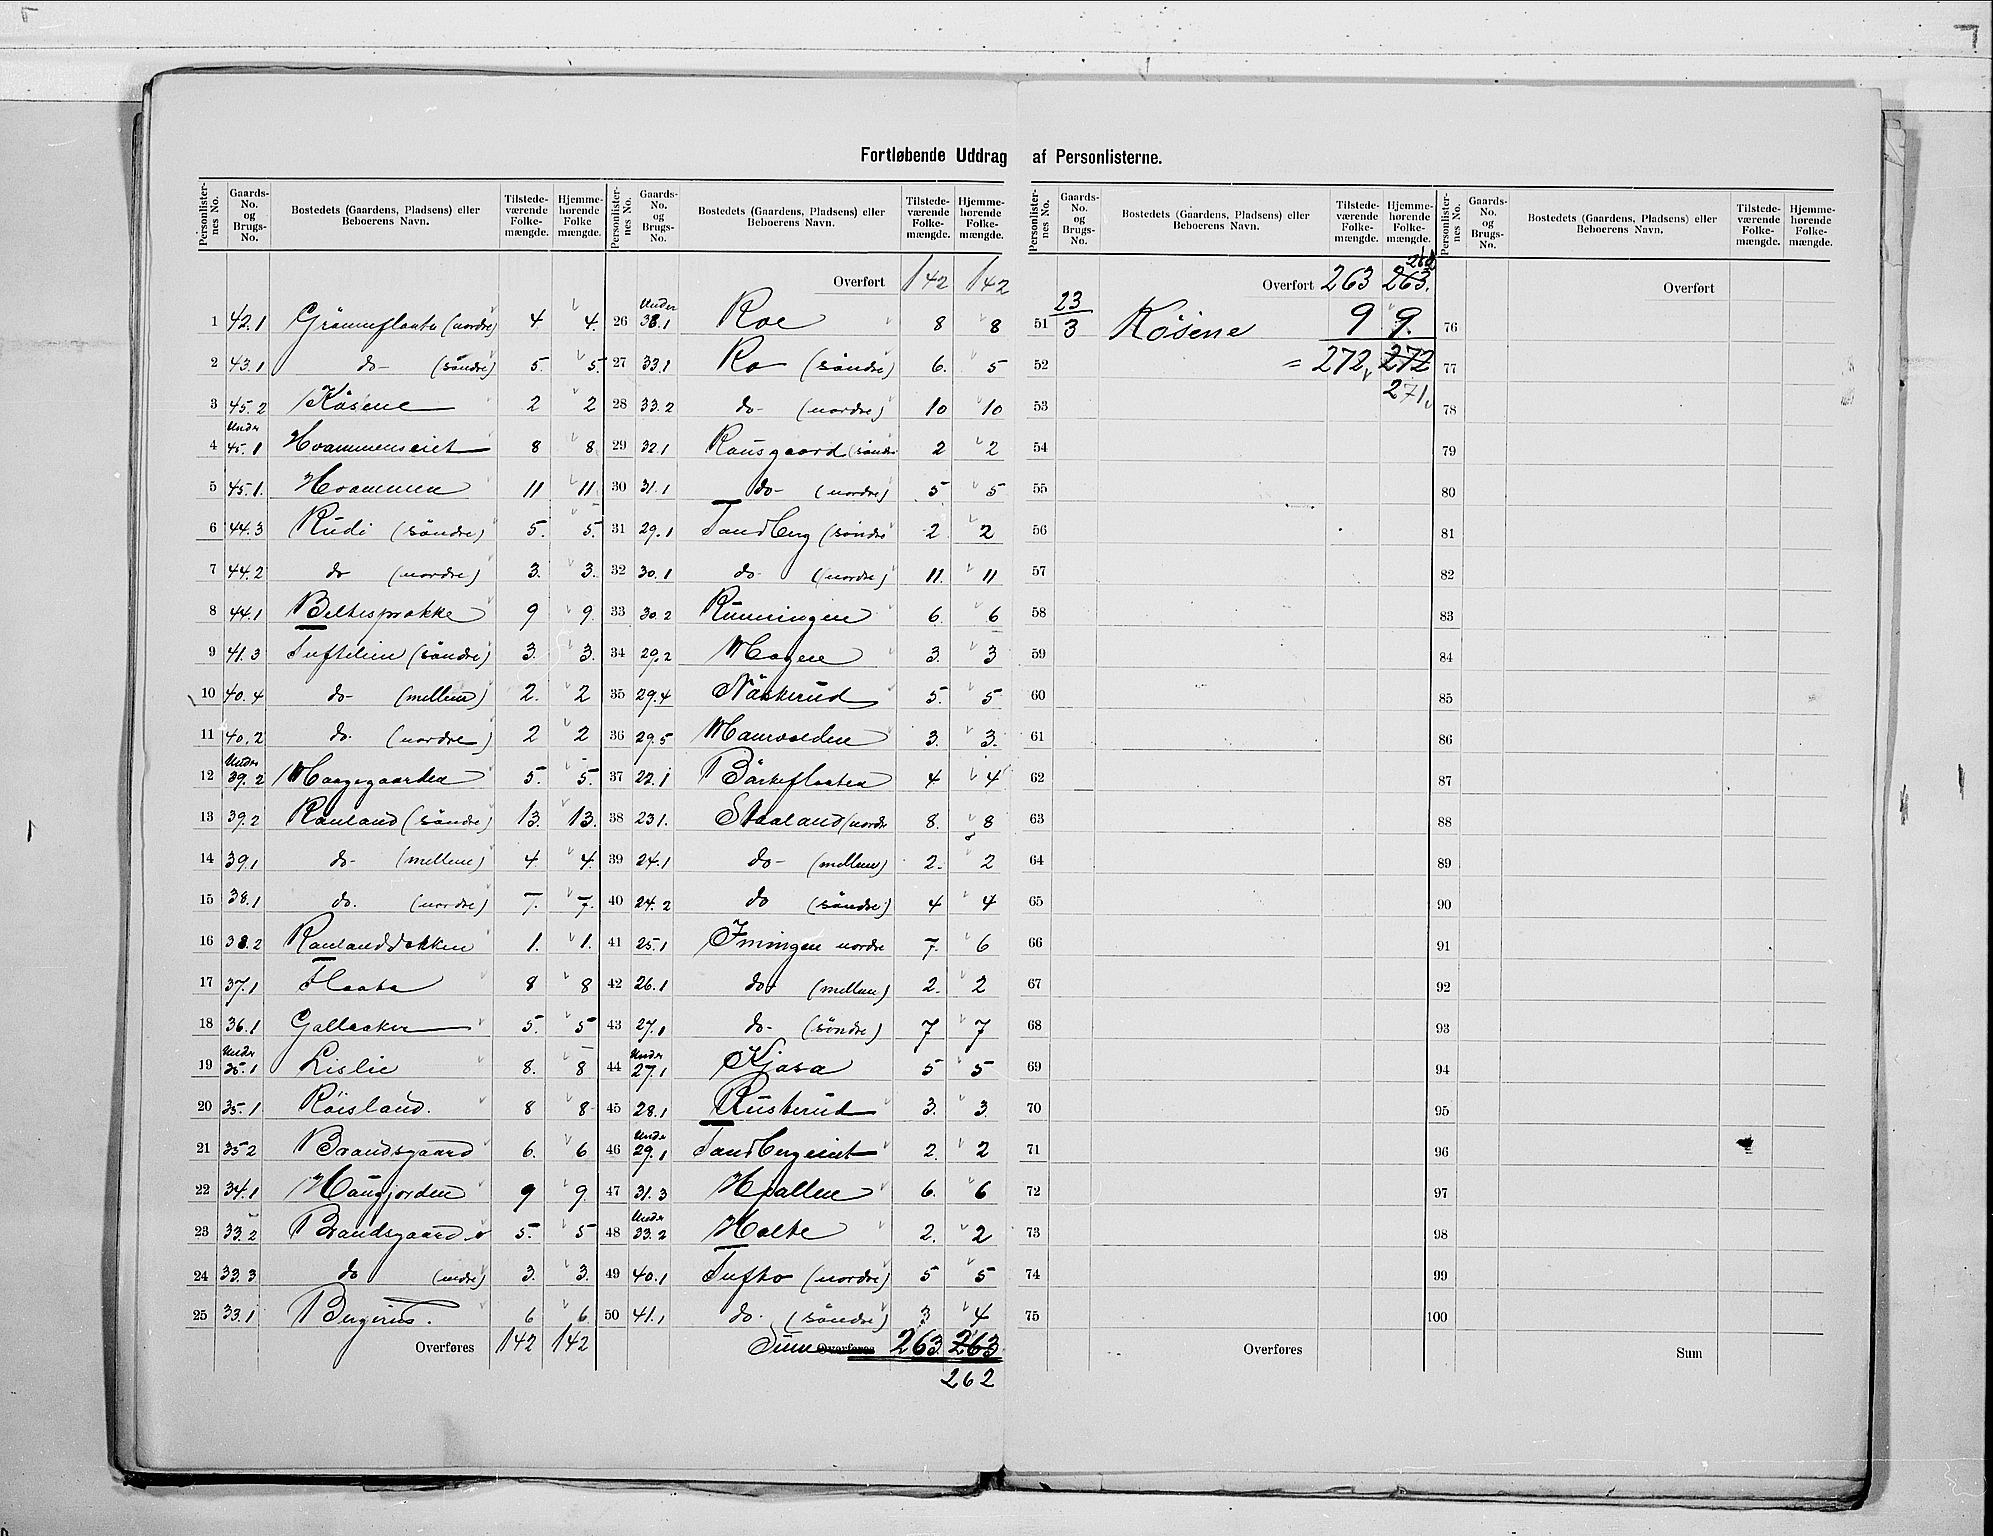 Fortløbende Uddrag af Personlisterne.
Personlisternes No. Gaards-No. og Brugs-No. Bostedets (Gaardens, Pladsens) eller Beboerens Navn. Tilstedeværende Folkemængde. Hjemmehørende Folkemængde.
1 42.1 Grönneflaata (nordre) 4 4.
2 43.1 do- (söndre) 5. 5.
3 45.2 Kåsene 2 2
4 Under 45.1 Hvammenseiet 8 8
5 45.1. Hvammen 11 11
6 44.3 Rudi (söndre) 5. 5.
7 44.2 do (nordre) 3. 3.
8 44.1 Beltesprække 9 9.
9 41.3 Tuftelien (söndre) 3. 3.
10 40.4 do- (mellem) 2. 2
11 40.2 do. (nordre) 2 2
12 Under 39.2 Haagegaarden 5. 5.
13 39.2 Rauland (söndre) 13. 13.
14 39.1 do- (mellem) 4. 4.
15 38.1 do. (nordre) 7. 7.
16 38.2 Raulanddokken 1. 1.
17 37.1 Flaata 8 8
18 36.1 Golleaker 5. 5
19 Under 35.1 Lislie 8. 8
20 35.1 Röisland. 8 8
21 35.2 Brandsgaard 6. 6
22 34.1 Haugjorden 9 9.
23 33.2 Brandsgaard 5. 5
24 33.3 do 3. 3.
25 33.1 6 6.
Overføres 142 142
Overført 142 142
26 Under 38.1 Roe 8 8
27 33.1 Ro (söndre) 6. 5
28 33.2 do- (nordre) 10 10
29 32.1 Rausgaard (söndre 2 2
30 31.1 do- (nordre) 5. 5
31 29.1 Tandberg (söndre 2 2
32 30.1 do- (nordre) 11. 11
33 30.2 Runningen 6. 6
34 29.2 Mogen 3. 3
35 29.4 Näkkerud 5. 5
36 29.5 Maurvolden 3. 3.
37 22.1 Börkeflaaten 4 4
38 23.1. Staaland (nordre 8. 8
39 24.1 do- (mellem) 2. 2
40 24.2 do (söndre) 4 4
41 25.1 Imingen nordre 7. 6
42 26.1 do- (mellem) 2. 2
43 27.1 do- (söndre) 7 7
44 Under 27.1 Kjosa 5 5
45 28.1 Rusterud 3. 3
46 Under 29.1 Tandbergeiet 2. 2
47 31.3 Hvallen 6. 6
48 Under 33.2 Holte 2. 2
49 40.1 Tufto (nordre) 5 5
50 41.1 do- (söndre) 3 4
Sum Overføres 263 263
262
262
Overført 263 263.
51 23/3 Kösene 9 9.
52 = 272 272
53 271
54
55
56
57
58
59
60
61
62
63
64
65
66
67
68
69
70
71
72
73
74
75
Overføres
Overført
76
77
78
79
80
81
82
83
84
85
86
87
88
89
90
91
92
93
94
95
96
97
98
99
100
Sum